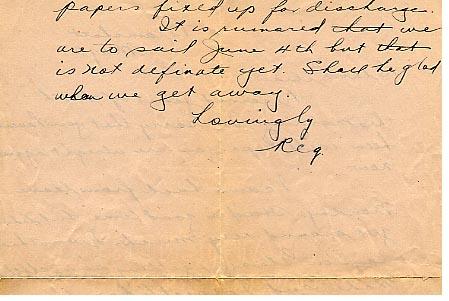 papers fixed up for discharge.
It is rumored that we
are to sail June 4th but that
is not definate yet. Shall be glad
when we get away.
Lovingly
Reg.